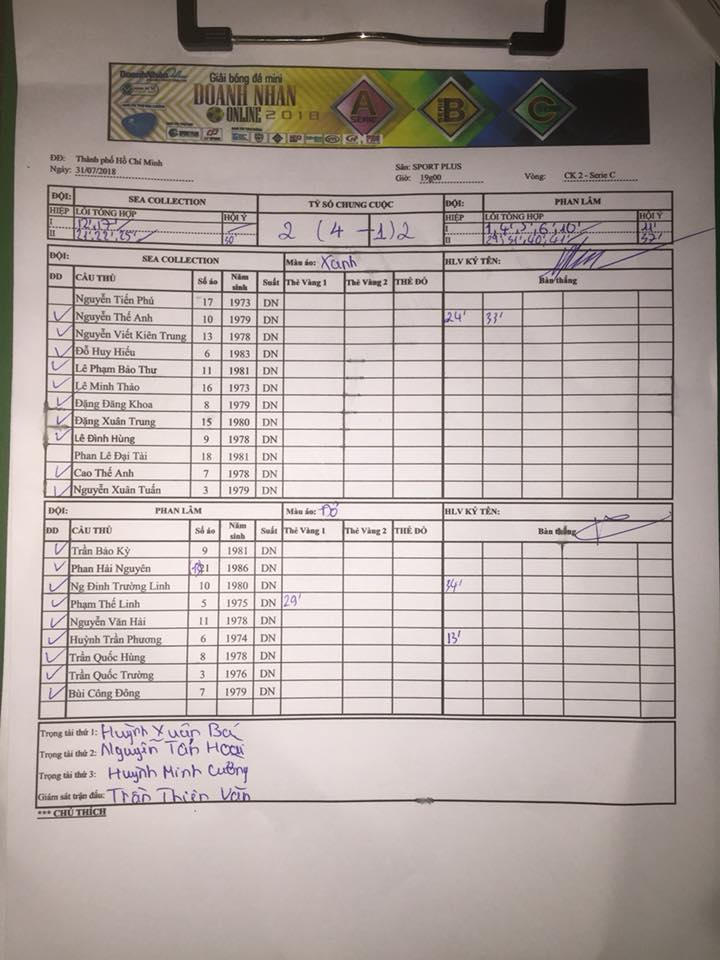 DoanhNhân
Giải bóng đá mini
DOANH NHAN
ONLINE 2018
A
SERIE
B
SERIE
C
ĐĐ: Thành phố Hồ Chí Minh
Ngày: 31/07/2018
Sân: SPORT PLUS
Giờ: 19g00 Vòng: CK 2 - Serie C
ĐỘI: SEA COLLECTION TỶ SỐ CHUNG CUỘC ĐỘI: PHAN LÂM
HIỆP LỖI TỔNG HỢP HỘI Ý 2 (4 - 1) 2 HIỆP LỖI TỔNG HỢP HỘI Ý
I 12', 17' I 1', 4', 6', 10' 11'
II 21', 22', 25' 30' II 29', 31', 40', 41' 37'
ĐỘI: SEA COLLECTION Màu áo: Xanh HLV KÝ TÊN:
ĐD CẦU THỦ Số áo Năm sinh Suất Thẻ Vàng 1 Thẻ Vàng 2 THẺ ĐỎ Bàn thắng
Nguyễn Tiến Phú 17 1973 DN
Nguyễn Thế Anh 10 1979 DN 24' 33'
Nguyễn Viết Kiên Trung 13 1978 DN
Đỗ Huy Hiếu 6 1983 DN
Lê Phạm Bảo Thư 11 1981 DN
Lê Minh Thảo 16 1973 DN
Đặng Đăng Khoa 8 1979 DN
Đặng Xuân Trung 15 1980 DN
Lê Đình Hùng 9 1978 DN
Phan Lê Đại Tài 18 1981 DN
Cao Thế Anh 7 1978 DN
Nguyễn Xuân Tuấn 3 1979 DN
ĐỘI: PHAN LÂM Màu áo: Đỏ HLV KÝ TÊN:
ĐD CẦU THỦ Số áo Năm sinh Suất Thẻ Vàng 1 Thẻ Vàng 2 THẺ ĐỎ Bàn thắng
Trần Bảo Kỳ 9 1981 DN
Phan Hải Nguyên 1986 DN
Ng Đình Trường Linh 10 1980 DN 34'
Phạm Thế Linh 5 1975 DN 29'
Nguyễn Văn Hải 11 1978 DN
Huỳnh Trần Phương 6 1974 DN 13'
Trần Quốc Hùng 8 1978 DN
Trần Quốc Trường 3 1976 DN
Bùi Công Đông 7 1979 DN
Trọng tài thứ 1: Huỳnh Xuân Bá
Trọng tài thứ 2: Nguyễn Tấn Hoài
Trọng tài thứ 3: Huỳnh Minh Cường
Giám sát trận đấu: Trần Thiên Vân
*** CHÚ THÍCH